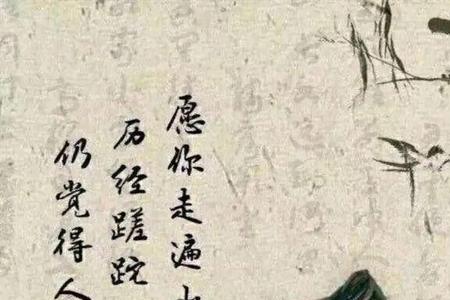 愿你走遍
历经蹉跎
仍觉得人